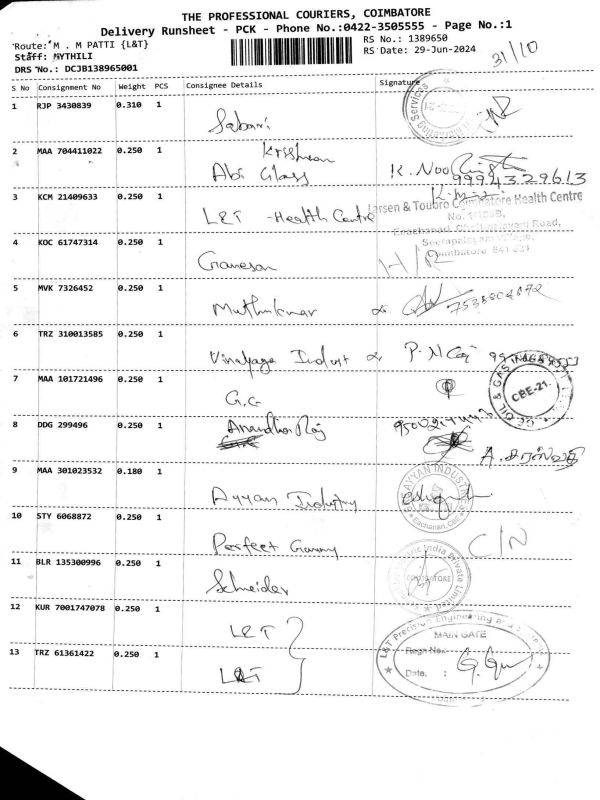 THE PROFESSIONAL COURIERS, COIMBATORE
Delivery Runsheet - PCK - Phone No.:0422-3505555 - Page No.:1
Route: M . M PATTI {L&T}
RS No.: 1389650
Staff: MYTHILI
RS Date: 29-Jun-2024
31/10
DRS No.: DCJB138965001
S No Consignment No Weight PCS Consignee Details Signature
1 RJP 3430839 0.310 1 Sabari
2 MAA 704411022 0.250 1 Krishnan
Abi Glass K. 9994329613
3 KCM 21409633 0.250 1 L&T - Health Centre
Larsen & Toubro Coimbatore Health Centre
4 KOC 61747314 0.250 1 Ganesan
Coimbatore 641 021
5 MVK 7326452 0.250 1 Muthukumar 7538804872
6 TRZ 310013585 0.250 1 Vinayaga Indust
7 MAA 101721496 0.250 1 G.C
OIL & GAS
CBE-21.
8 DDG 299496 0.250 1 Anandha Raj
A. சரஸ்வதி
9 MAA 301023532 0.180 1 Ayyan Industry
AYYAN INDUSTRIES
10 STY 6068872 0.250 1 Perfect C/N
11 BLR 135300996 0.250 1 Schneider
India Private Limited
COIMBATORE
12 KUR 7001747078 0.250 1 L&T
L&T Precision Engineering and
MAIN GATE
13 TRZ 61361422 0.250 1 L&T
Regn No.:
Date. :